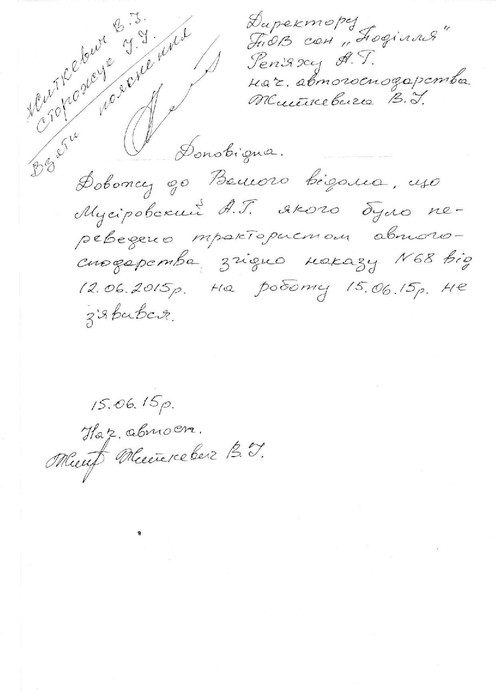 Житкевич В.І.
Сторожуе І.І.
Взяти пояснення
Директору
ТОВ сан „Поділля"
Реп'яху А.Г.
нач. автогосподарства
Житкевича В.І.
Доповідна.
Довожу до Вашого відома, що
Мусіровский А.Г. якого було пе-
реведено трактористом автого-
сподарства згідно наказу N68 від
12.06.2015р. на роботу 15.06.15р. не
з'явився.
15.06.15р.
Нач. автогосп.
Житкевич В.І.